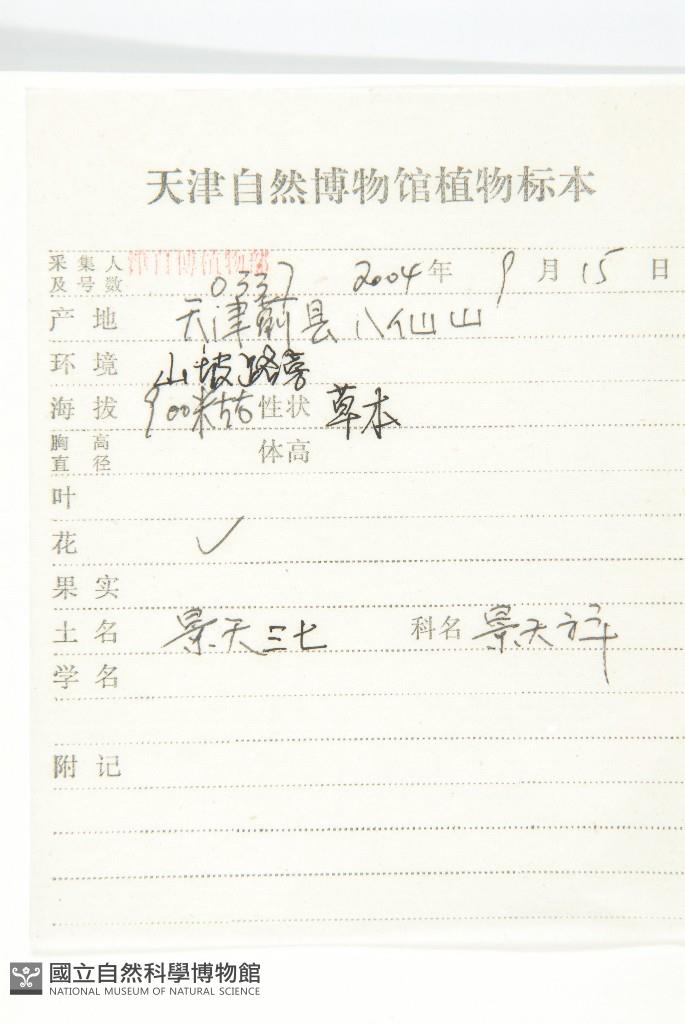 天津自然博物馆植物标本
采集人及号数 津自博植物部 0337 2004年 9月15日
产地 天津蓟县八仙山
环境 山坡路旁
海拔 900米 性状 草本
胸高直径 体高
叶
花 ✓
果实
土名 景天三七 科名 景天科
学名
附记
國立自然科學博物館
NATIONAL MUSEUM OF NATURAL SCIENCE